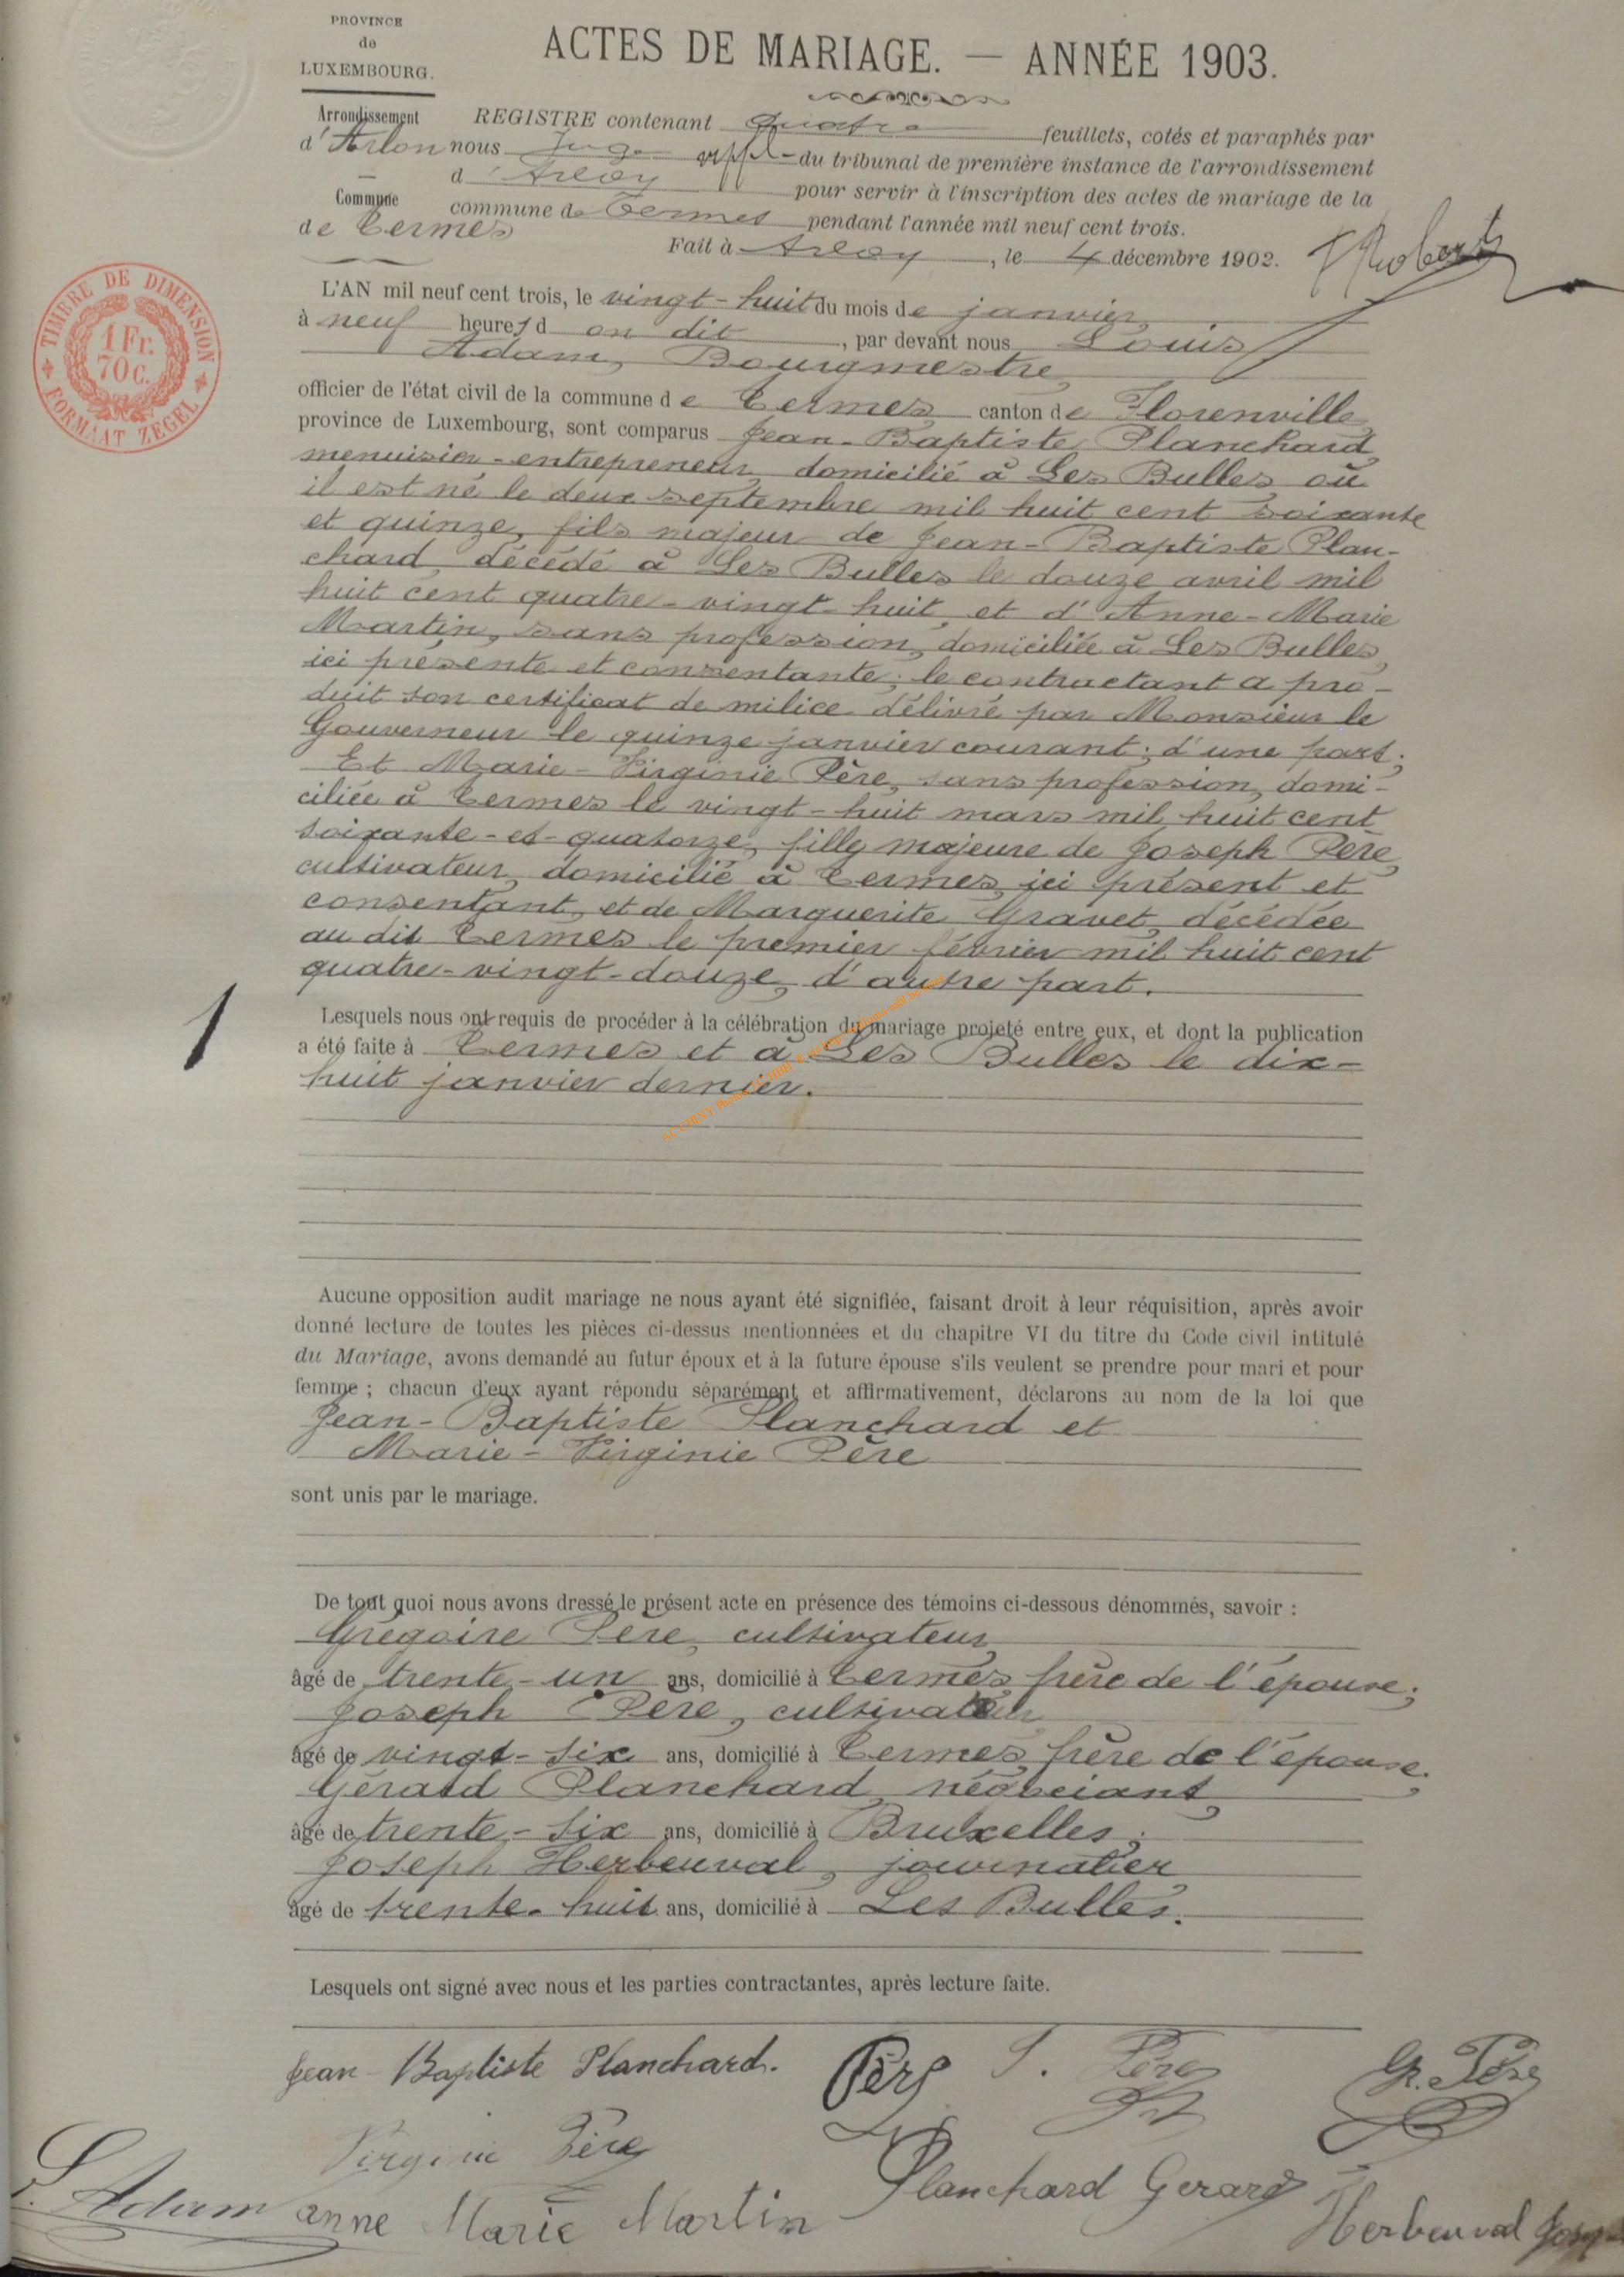 PROVINCE
de
LUXEMBOURG.
ACTES DE MARIAGE. — ANNÉE 1903.
Arrondissement
d'Arlon
Commune
de Termes
REGISTRE contenant quatre feuillets, cotés et paraphés par
nous Juge du tribunal de première instance de l'arrondissement
d'Arlon pour servir à l'inscription des actes de mariage de la
commune de Termes pendant l'année mil neuf cent trois.
Fait à Arlon, le 4 décembre 1902.
TIMBRE DE DIMENSION
1 Fr.
70 C.
FORMAAT ZEGEL
L'AN mil neuf cent trois, le vingt-huit du mois de janvier,
à neuf heures d on dit, par devant nous Louis
Adam, Bourgmestre,
officier de l'état civil de la commune de Termes, canton de Florenville,
province de Luxembourg, sont comparus Jean-Baptiste Planchard,
menuisier-entrepreneur, domicilié à Les Bulles, où
il est né le deux septembre mil huit cent soixante
et quinze, fils majeur de Jean-Baptiste Plan-
chard, décédé à Les Bulles le douze avril mil
huit cent quatre-vingt-huit, et d'Anne-Marie
Martin, sans profession, domiciliée à Les Bulles,
ici présente et consentante; le contractant a pro-
duit son certificat de milice délivré par Monsieur le
Gouverneur le quinze janvier courant; d'une part;
Et Marie-Virginie Père, sans profession, domi-
ciliée à Termes le vingt-huit mars mil huit cent
soixante-et-quatorze, fille majeure de Joseph Père,
cultivateur, domicilié à Termes, ici présent et
consentant, et de Marguerite Gravet, décédée
au dit Termes le premier février mil huit cent
quatre-vingt-douze, d'autre part.
1
Lesquels nous ont requis de procéder à la célébration du mariage projeté entre eux, et dont la publication
a été faite à Termes et à Les Bulles le dix-
huit janvier dernier.
Aucune opposition audit mariage ne nous ayant été signifiée, faisant droit à leur réquisition, après avoir
donné lecture de toutes les pièces ci-dessus mentionnées et du chapitre VI du titre du Code civil intitulé
du Mariage, avons demandé au futur époux et à la future épouse s'ils veulent se prendre pour mari et pour
femme ; chacun d'eux ayant répondu séparément et affirmativement, déclarons au nom de la loi que
Jean-Baptiste Planchard et
Marie-Virginie Père
sont unis par le mariage.
De tout quoi nous avons dressé le présent acte en présence des témoins ci-dessous dénommés, savoir :
Grégoire Père, cultivateur,
âgé de trente-un ans, domicilié à Termes, frère de l'épouse;
Joseph Père, cultivateur
âgé de vingt-six ans, domicilié à Termes, frère de l'épouse;
Gérard Planchard, négociant,
âgé de trente-six ans, domicilié à Bruxelles;
Joseph Herbeuval, journalier,
âgé de trente-huit ans, domicilié à Les Bulles.
Lesquels ont signé avec nous et les parties contractantes, après lecture faite.
Jean-Baptiste Planchard. Père J. Père Gr. Père
Virginie Père
L. Adam anne Marie Martin Planchard Gerard Herbeuval